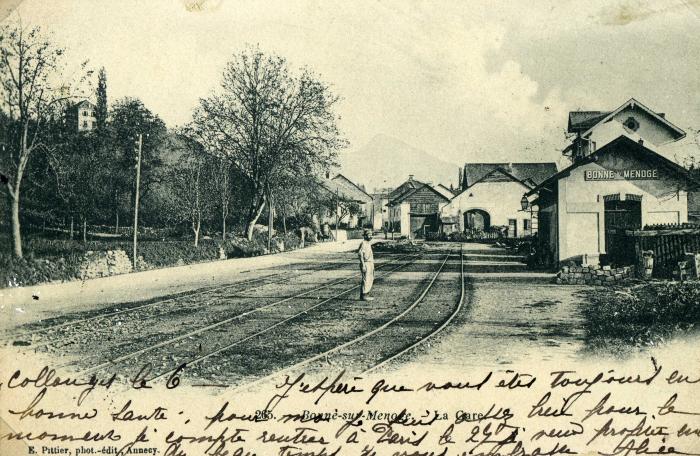 BONNE s/ MENOGE
Collonges le 6 J'espère que vous êtes toujours en
265. Bonne-sur-Menoge. - La Gare
bonne santé, pour moi je suis assez bien pour le
moment je compte rentrer à Paris le 27 je veux profiter
E. Pittier, phot.-édit, Annecy.
du beau temps Je vous embrasse Alice